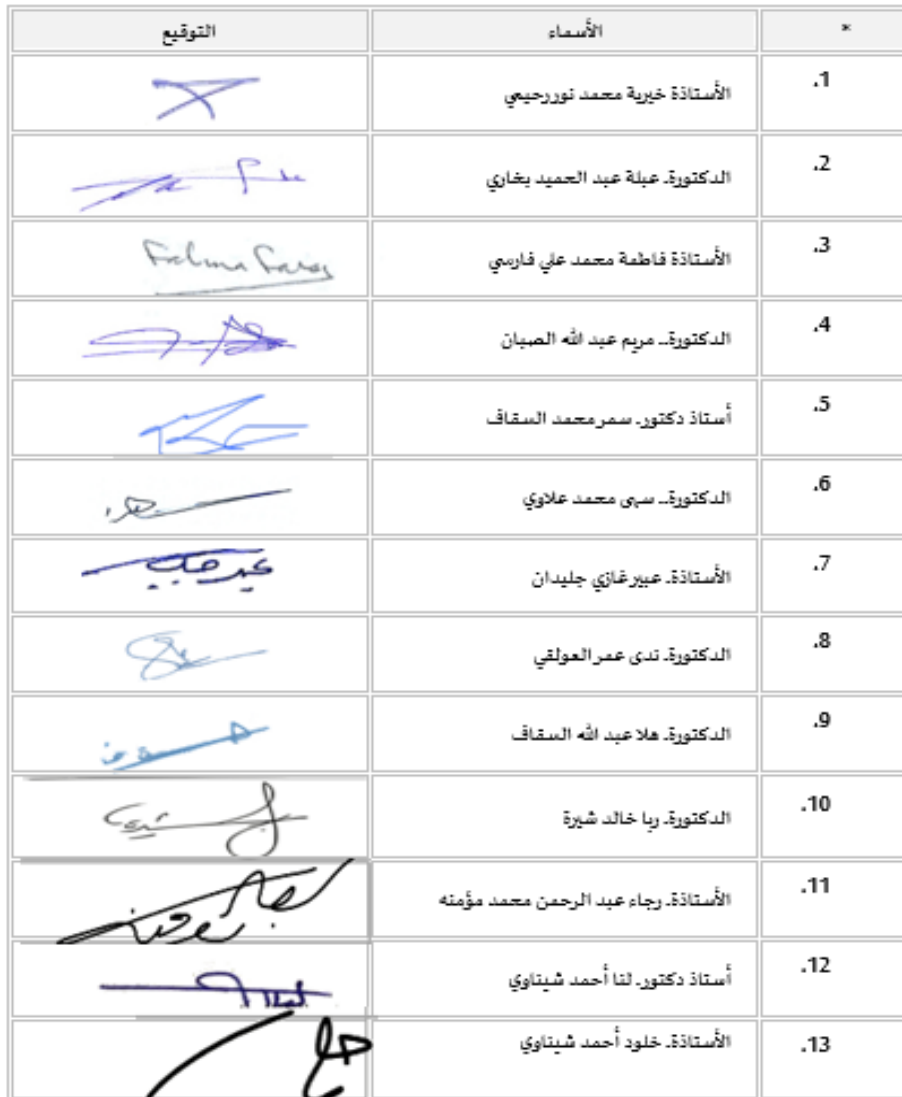 * الأسماء التوقيع
1. الأستاذة خيرية محمد نور رحيمي
2. الدكتورة. عبلة عبد الحميد بخاري
3. الأستاذة فاطمة محمد علي فارسي
4. الدكتورة.. مريم عبد الله الصبان
5. أستاذ دكتور. سمر محمد السقاف
6. الدكتورة.. سهى محمد علاوي
7. الأستاذة. عبير غازي جليدان
8. الدكتورة. ندى عمر العولقي
9. الدكتورة. هلا عبد الله السقاف
10. الدكتورة. ربا خالد شيرة
11. الأستاذة. رجاء عبد الرحمن محمد مؤمنه
12. أستاذ دكتور. لنا أحمد شيناوي
13. الأستاذة. خلود أحمد شيناوي